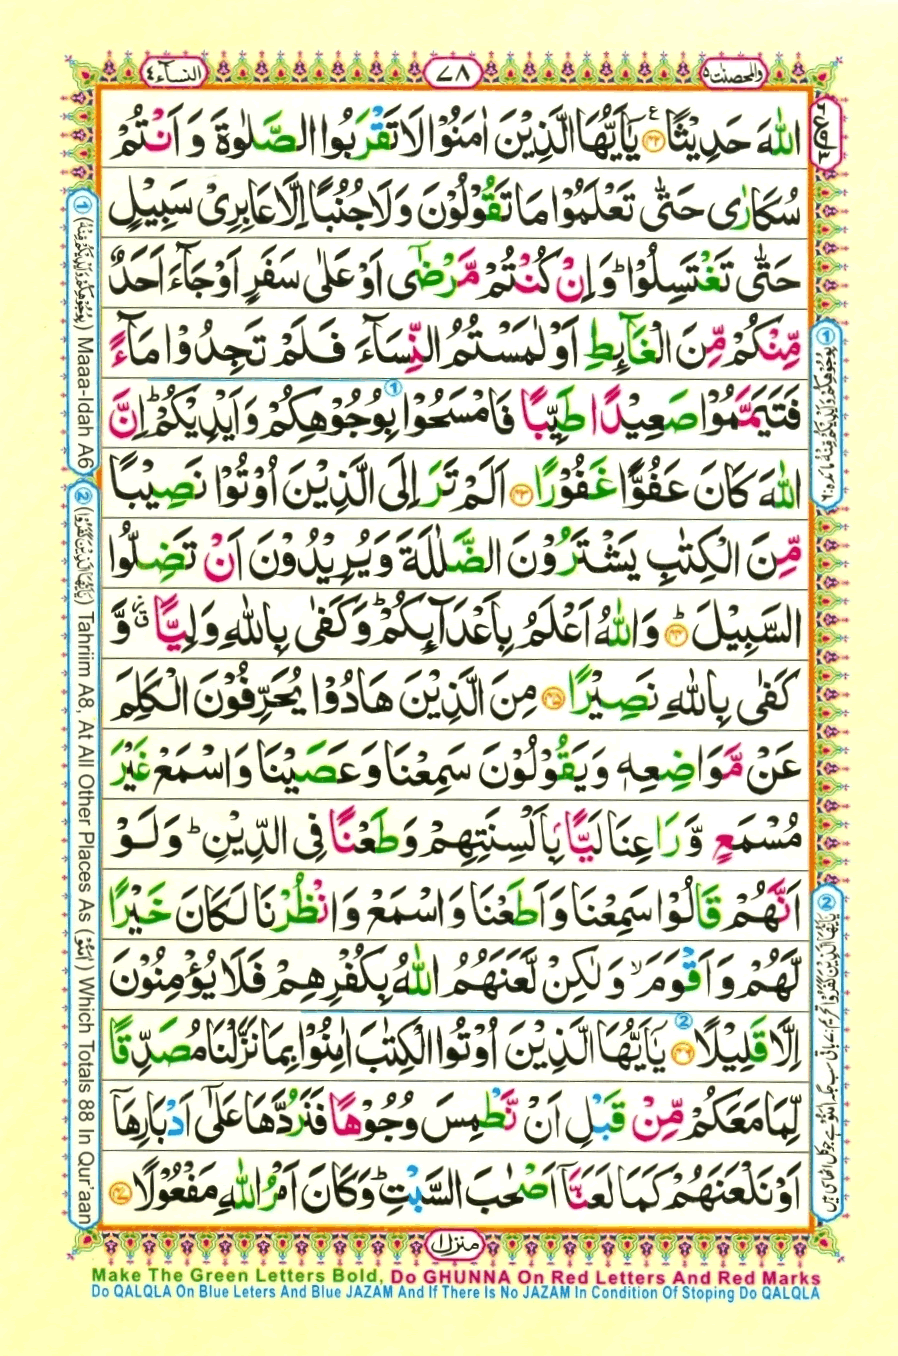 والمحصنٰت ۵
۷۸
النسآء ۴
اللّٰهَ حَدِيْثًا ﴿۴۲﴾ يٰٓاَيُّهَا الَّذِيْنَ اٰمَنُوْا لَا تَقْرَبُوا الصَّلٰوةَ وَ اَنْتُمْ
سُكَارٰى حَتّٰى تَعْلَمُوْا مَا تَقُوْلُوْنَ وَ لَا جُنُبًا اِلَّا عَابِرِىْ سَبِيْلٍ
حَتّٰى تَغْتَسِلُوْا ؕ وَ اِنْ كُنْتُمْ مَّرْضٰٓى اَوْ عَلٰى سَفَرٍ اَوْ جَآءَ اَحَدٌ
مِّنْكُمْ مِّنَ الْغَآئِطِ اَوْ لٰمَسْتُمُ النِّسَآءَ فَلَمْ تَجِدُوْا مَآءً
فَتَيَمَّمُوْا صَعِيْدًا طَيِّبًا فَامْسَحُوْا ① بِوُجُوْهِكُمْ وَ اَيْدِيْكُمْ ؕ اِنَّ
اللّٰهَ كَانَ عَفُوًّا غَفُوْرًا ﴿۴۳﴾ اَلَمْ تَرَ اِلَى الَّذِيْنَ اُوْتُوْا نَصِيْبًا
مِّنَ الْكِتٰبِ يَشْتَرُوْنَ الضَّلٰلَةَ وَ يُرِيْدُوْنَ اَنْ تَضِلُّوا
السَّبِيْلَ ؕ ﴿۴۴﴾ وَ اللّٰهُ اَعْلَمُ بِاَعْدَآئِكُمْ ؕ وَ كَفٰى بِاللّٰهِ وَلِيًّا وَّ
كَفٰى بِاللّٰهِ نَصِيْرًا ﴿۴۵﴾ مِنَ الَّذِيْنَ هَادُوْا يُحَرِّفُوْنَ الْكَلِمَ
عَنْ مَّوَاضِعِهٖ وَ يَقُوْلُوْنَ سَمِعْنَا وَ عَصَيْنَا وَ اسْمَعْ غَيْرَ
مُسْمَعٍ وَّ رَاعِنَا لَيًّۢا بِاَلْسِنَتِهِمْ وَ طَعْنًا فِى الدِّيْنِ ؕ وَ لَوْ
اَنَّهُمْ قَالُوْا سَمِعْنَا وَ اَطَعْنَا وَ اسْمَعْ وَ انْظُرْنَا لَكَانَ خَيْرًا
لَّهُمْ وَ اَقْوَمَ ۙ وَ لٰكِنْ لَّعَنَهُمُ اللّٰهُ بِكُفْرِهِمْ فَلَا يُؤْمِنُوْنَ
اِلَّا قَلِيْلًا ﴿۴۶﴾ ② يٰٓاَيُّهَا الَّذِيْنَ اُوْتُوا الْكِتٰبَ اٰمِنُوْا بِمَا نَزَّلْنَا مُصَدِّقًا
لِّمَا مَعَكُمْ مِّنْ قَبْلِ اَنْ نَّطْمِسَ وُجُوْهًا فَنَرُدَّهَا عَلٰٓى اَدْبَارِهَآ
اَوْ نَلْعَنَهُمْ كَمَا لَعَنَّآ اَصْحٰبَ السَّبْتِ ؕ وَ كَانَ اَمْرُ اللّٰهِ مَفْعُوْلًا ﴿۴۷﴾
منزل ۱
① (بِوُجُوْهِكُمْ وَاَيْدِيْكُمْ مِّنْهُ) Maaa-Idah A6
② (يٰٓاَيُّهَا الَّذِيْنَ كَفَرُوْا) Tahriim A8, At All Other Places As (اٰمَنُوْا) Which Totals 88 In Qur'aan
① بِوُجُوْهِكُمْ وَاَيْدِيْكُمْ مِّنْهُ
② يٰٓاَيُّهَا الَّذِيْنَ كَفَرُوْا
Make The Green Letters Bold, Do GHUNNA On Red Letters And Red Marks
Do QALQLA On Blue Leters And Blue JAZAM And If There Is No JAZAM In Condition Of Stoping Do QALQLA